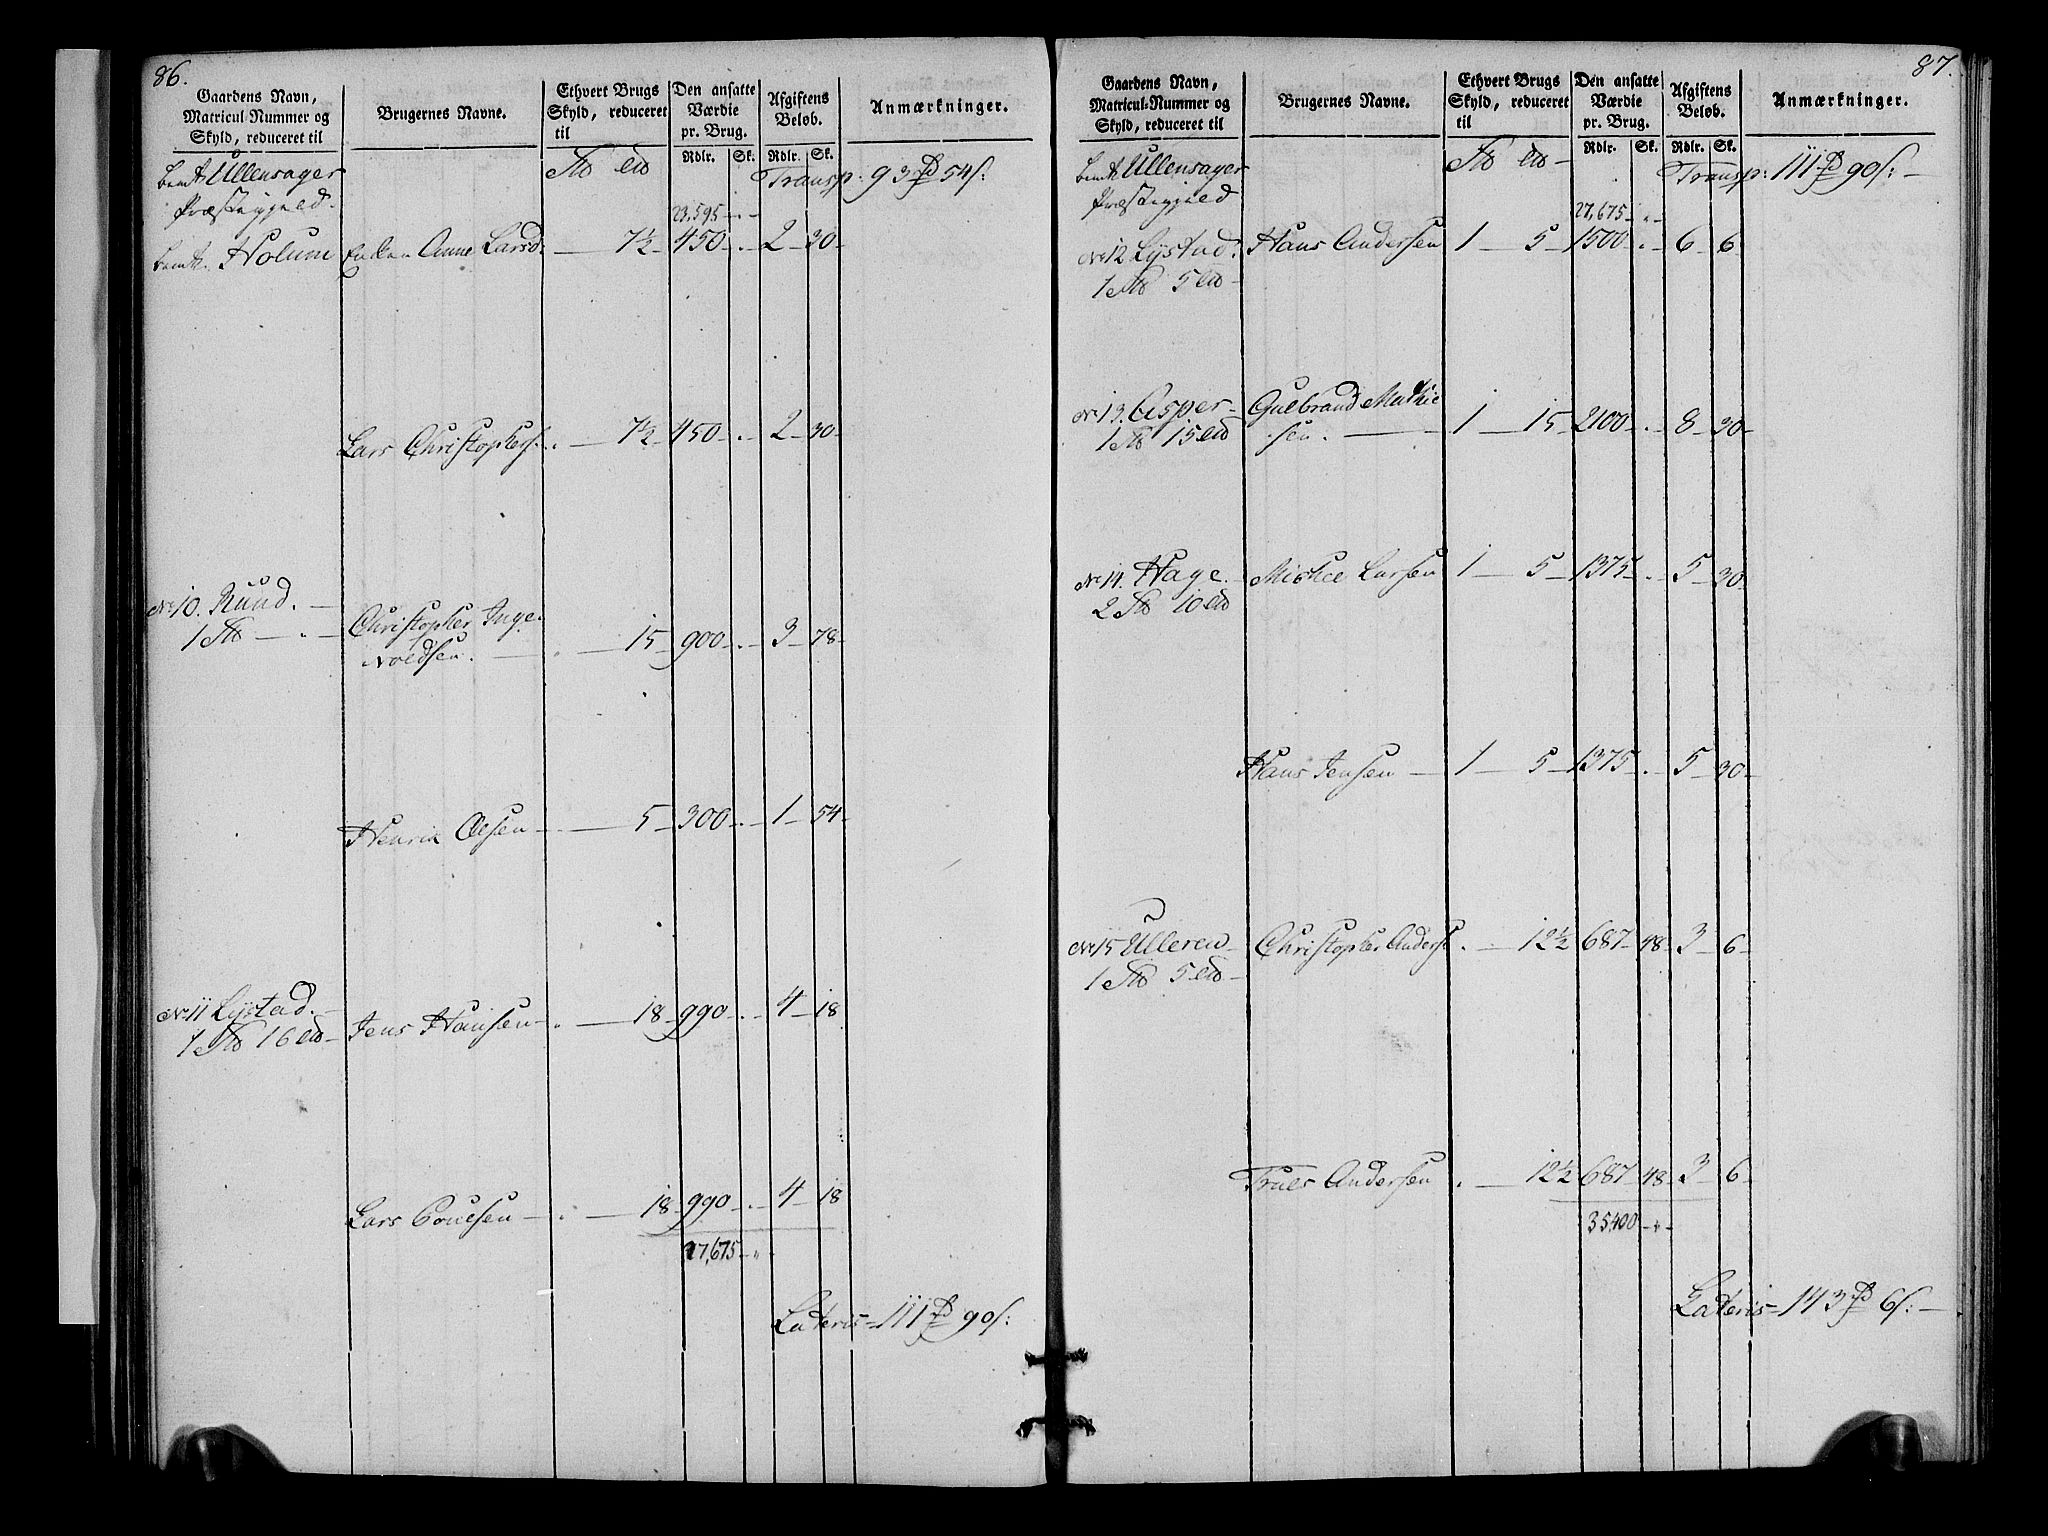 86.
Gaardens Navn, Matricul Nummer og Skyld, reduceret til
Brugernes Navne.
Ethvert Brugs Skyld, reduceret til
Den ansatte Værdie pr. Brug.
Afgiftens Beløb.
Anmærkninger.
Rdlr. Sk. Rdlr. Sk.
bemte Ullensager
Præstegjeld.
Transp: 93 54 s:
23,595 - " -
bemte Holum Enken Anne Larsd. — 7½ 450 - . - 2 - 30 -
Lars Christophers. . — 7½ 450 - . - 2 - 30 -
No 10. Ruud. — Christopher Inge-
1 — . — voldsen. — . — 15 900 - . - 3 - 78 -
Henrik Olsen — . — 5 300 - . - 1 - 54 -
No 11 Lystad. — Jens Hansen — . — 18 990 - . - 4 - 18
1 16
Lars Povelsen — . — 18 990 - . - 4 - 18
27,675 - "
Lateris = 111 90 s:
87.
Gaardens Navn, Matricul-Nummer og Skyld, reduceret til
Brugernes Navne.
Ethvert Brugs Skyld, reduceret til
Den ansatte Værdie pr. Brug.
Afgiftens Beløb.
Anmærkninger.
Rdlr. Sk. Rdlr. Sk.
bemte Ullensager
Præstegjeld
Transp: 111 90 s: —
27,675 - " -
No 12 Lystad. Hans Andersen 1 — 5 - 1500 - . - 6 - 6 -
1 5
No 13. Asper — Gulbrand Mathie
1 15 sen. — 1 — 15 2100 - . - 8 - 30 -
No 14. Hage. Mickel Larsen 1 — 5 - 1375 - . - 5 - 30
2 10
Hans Jensen — 1 — 5 - 1375 - . - 5 - 30 -
No 15 Ulleren — Christopher Anders . . 12½ 687 - 48 - 3 - 6 -
1 5
Truls Andersen . — 12½ 687 48 - 3 - 6
35,400 - " -
Lateris = 143 6 s: —